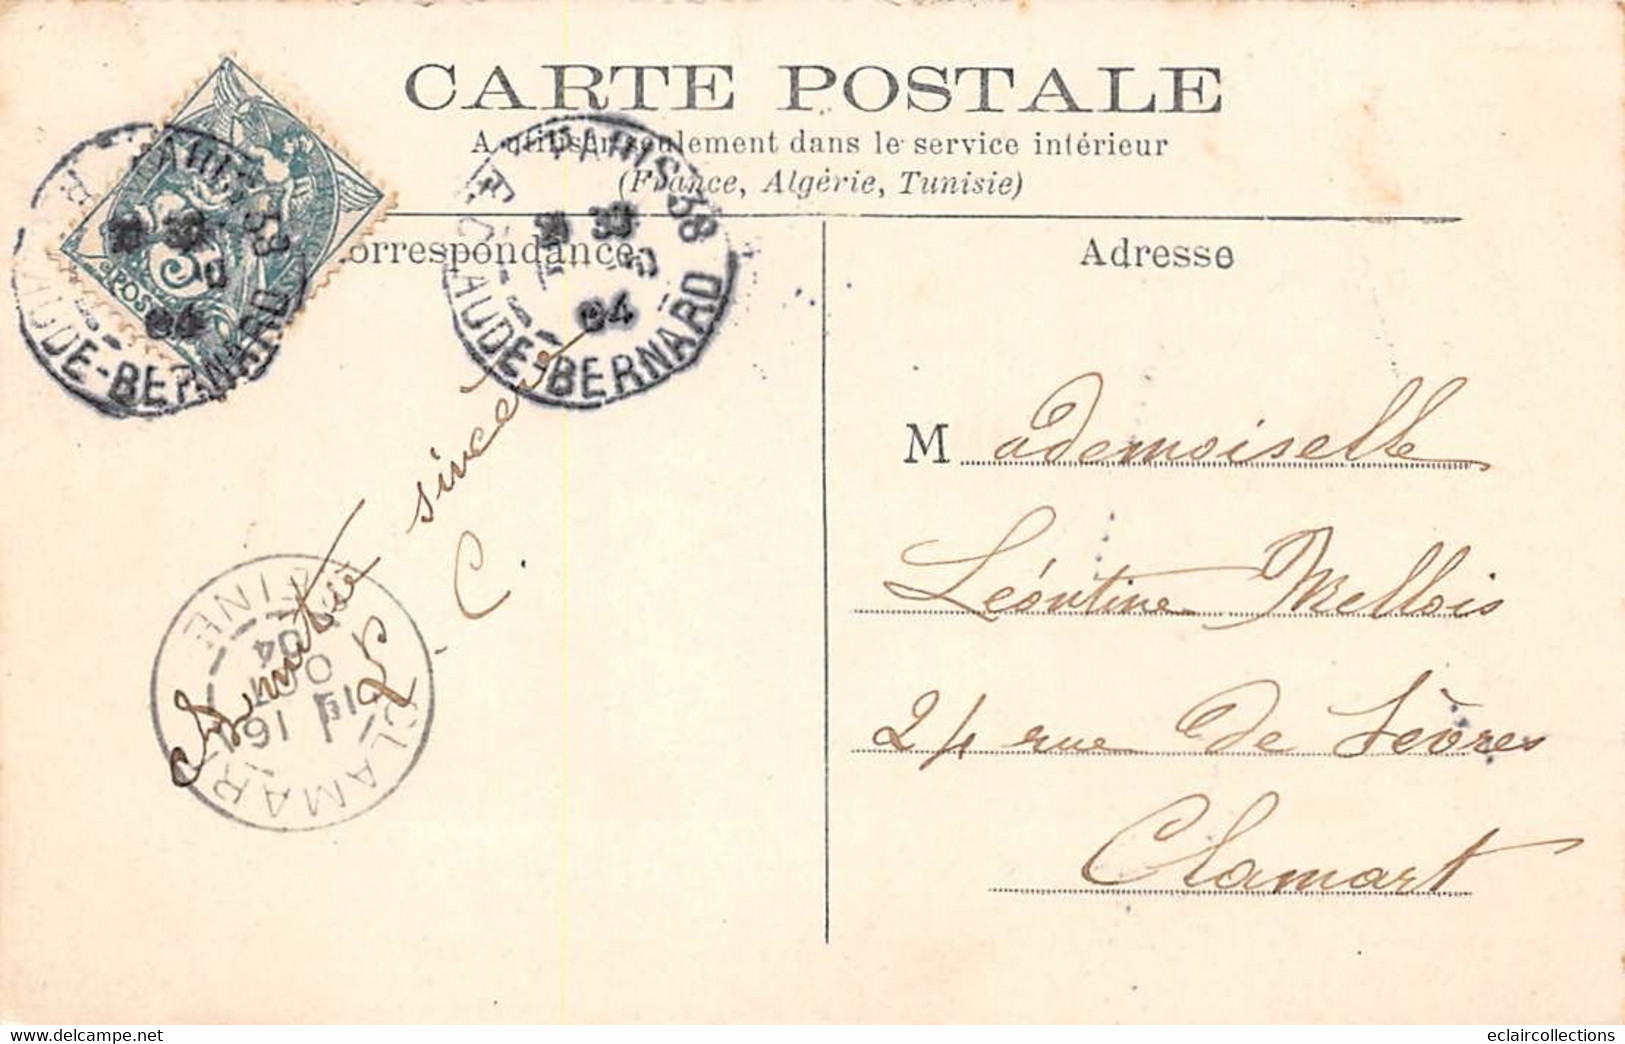 CARTE POSTALE
A utiliser seulement dans le service intérieur
(France, Algérie, Tunisie)
orrespondance
Adresse
PARIS 38
R. CLAUDE-BERNARD
04
PARIS 38
R. CLAUDE-BERNARD
04
POSTES
5
Amitié sincère
L. C.
CLAMART
SEINE
16
OCT
04
Mademoiselle
Léontine Mellois
24 rue de Sèvres
Clamart
eclaircollections